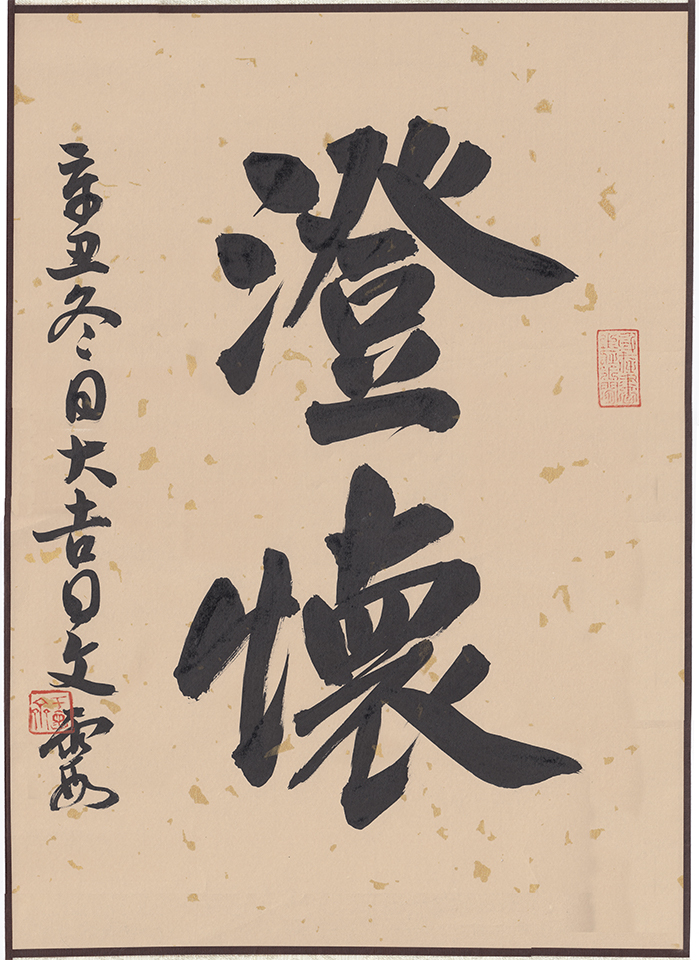 澄懷
辛丑冬日大吉日文霞